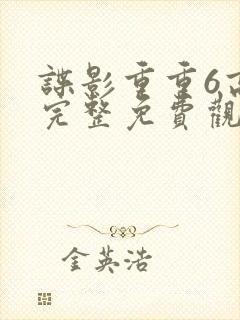 諜影重重6高
完整免費觀
金英浩